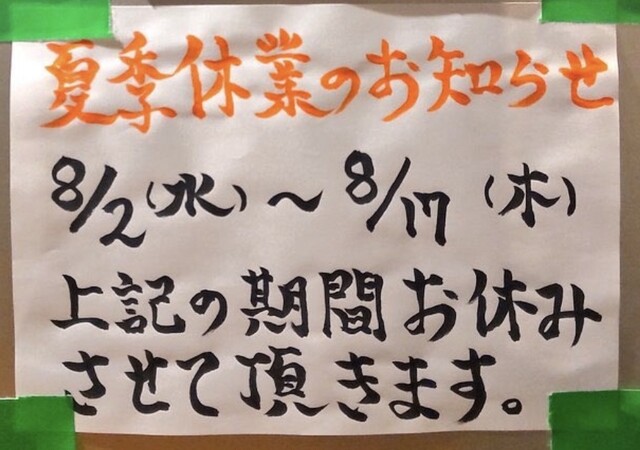 夏季休業のお知らせ
8/2(水)~8/17(木)
上記の期間お休み
させて頂きます。